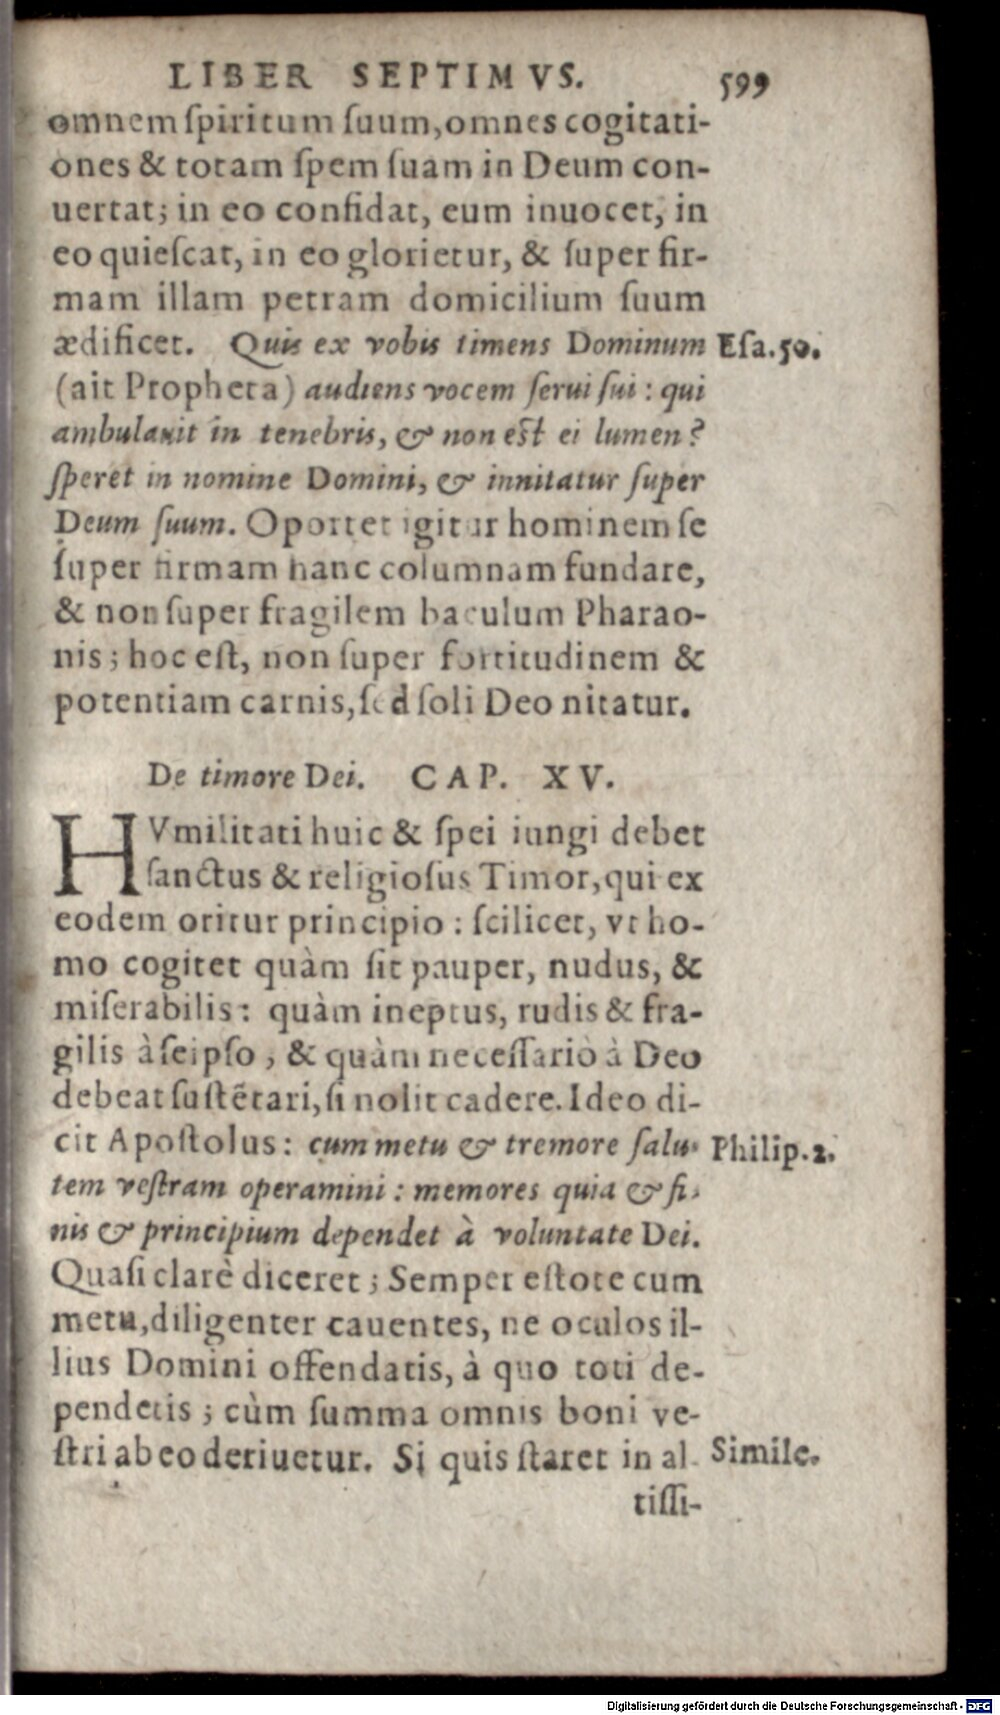 LIBER SEPTIMVS. 599
omnem ſpiritum ſuum, omnes cogitati-
ones & totam ſpem ſuam in Deum con-
uertat; in eo confidat, eum inuocet, in
eo quieſcat, in eo glorietur, & ſuper fir-
mam illam petram domicilium ſuum
ædificet. Quis ex vobis timens Dominum Eſa.50.
(ait Propheta) audiens vocem ſerui ſui: qui
ambulauit in tenebris, & non eſt ei lumen?
ſperet in nomine Domini, & innitatur ſuper
Deum ſuum. Oportet igitur hominem ſe
ſuper firmam hanc columnam fundare,
& non ſuper fragilem baculum Pharao-
nis; hoc eſt, non ſuper fortitudinem &
potentiam carnis, ſed ſoli Deo nitatur.
De timore Dei. CAP. XV.
HVmilitati huic & ſpei iungi debet
ſanctus & religioſus Timor, qui ex
eodem oritur principio: ſcilicet, vt ho-
mo cogitet quàm ſit pauper, nudus, &
miſerabilis: quàm ineptus, rudis & fra-
gilis à ſeipſo, & quàm neceſſariò à Deo
debeat ſuſtẽtari, ſi nolit cadere. Ideo di-
cit Apoſtolus: cum metu & tremore ſalu- Philip.2.
tem veſtram operamini: memores quia & fi-
nis & principium dependet à voluntate Dei.
Quaſi clarè diceret; Semper eſtote cum
metu, diligenter cauentes, ne oculos il-
lius Domini offendatis, à quo toti de-
pendetis; cùm ſumma omnis boni ve-
ſtri ab eo deriuetur. Si quis ſtaret in al- Simile.
tiſſi-
Digitalisierung gefördert durch die Deutsche Forschungsgemeinschaft - DFG